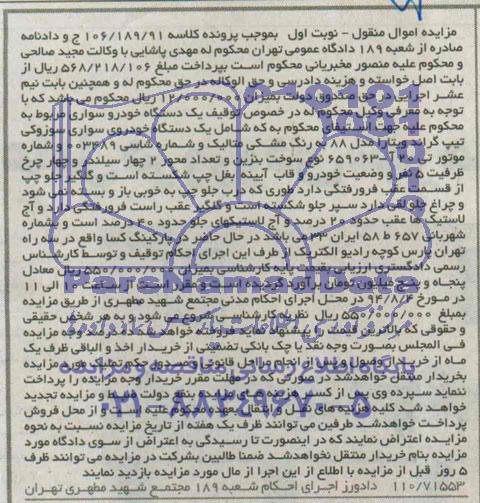 مزایده اموال منقول - نوبت اول بموجب پرونده کلاسه ۱۰۶/۱۸۹/۹۱ ج و دادنامه
صادره از شعبه ۱۸۹ دادگاه عمومی تهران محکوم له مهدی پاشایی با وکالت مجید صالحی
و محکوم علیه منصور مخبریانی محکوم است بپرداخت مبلغ ۵۶۸/۲۱۸/۱۰۶ ریال از
بابت اصل خواسته و هزینه دادرسی و حق الوکاله در حق محکوم له و همچنین بابت نیم
عشر اجرایی در حق صندوق دولت بمیزان ۱۲/۰۰۰/۰۰۰ ریال محکوم می باشد که با
توجه به معرفی وکیل محکوم له در خصوص توقیف یک دستگاه خودرو سواری مربوط به
محکوم علیه جهت استیفای محکوم به که شامل یک دستگاه خودروی سواری سوزوکی
تیپ گراند ویتارا مدل ۸۸ رنگ مشکی متالیک و شماره شاسی و شماره
موتور نوع سوخت بنزین و تعداد محور ۲ چهار سیلندر و چهار چرخ
ظرفیت ۵ نفر و وضعیت خودرو از قاب آیینه بغل چپ شکسته است و گلگیر جلو چپ
از قسمت عقب فرورفتگی دارد طوری که درب جلو چپ به خوبی باز و بسته نمی شود
و چراغ جلو لقی دارد سپر جلو شکسته است و گلگیر عقب راست فرورفتگی دارد و آج
لاستیک ها عقب حدود ۲۰ درصد و آج لاستیکهای جلو حدود ۴۰ درصد است و بشماره
شهربانی ۶۵۷ ط ۵۸ ایران ۳۳ می باشد در حال حاضر در پارکینگ کسا واقع در سه راه
تهران پارس کوچه رادیو الکتریک از طرف این اجرای احکام توقیف و توسط کارشناس
رسمی دادگستری ارزیابی بقیمت پایه کارشناسی بمیزان ۵۵۰/۰۰۰/۰۰۰ ریال معادل
پنجاه و پنج میلیون تومان برآورد گردیده است و مقرر است از ساعت ۱۰ الی ۱۱
در مورخ ۹۴/۸/۴ در محل اجرای احکام مدنی مجتمع شهید مطهری از طریق مزایده
بمبلغ ۵۵۰/۰۰۰/۰۰۰ ریال نظریه کارشناسی شروع می شود و به هر شخص حقیقی
و حقوقی که بالاترین قیمت را پیشنهاد نماید فروخته خواهد شد ده درصد وجه مزایده
فی المجلس بصورت وجه نقد یا چک بانکی تضمینی از خریدار اخذ و الباقی ظرف یک
ماه از خریدار وصول و پس از انجام مراحل قانونی و صدور حکم تملیک مورد مزایده
بخریدار منتقل خواهد شد در صورتی که در مهلت مقرر خریدار وجه مزایده را پرداخت
ننماید سپرده وی پس از کسر هزینه های مزایده بنفع دولت ضبط و مزایده تجدید
خواهد شد کلیه هزینه های نقل و انتقال بعهده محکوم علیه است و از محل فروش
پرداخت خواهد شد طرفین می توانند ظرف یک هفته از تاریخ مزایده نسبت به نحوه
مزایده اعتراض نمایند که در اینصورت تا رسیدگی به اعتراض از سوی دادگاه مورد
مزایده بنام خریدار منتقل نخواهد شد ضمنا طالبین بشرکت در مزایده می توانند ظرف
۵ روز قبل از مزایده با اطلاع از این اجرا از مال مورد مزایده بازدید نمایند
۱۱۰/۷۱۵۵۳ دادورز اجرای احکام شعبه ۱۸۹ مجتمع شهید مطهری تهران
پایگاه اطلاع رسانی مناقصه و مزایده
۰۲۱-۸۸۳۴۹۶۷۰-۵